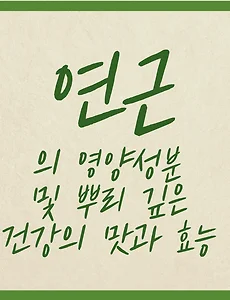 연근
의 영양성분
및 뿌리 깊은
건강의 맛과 효능